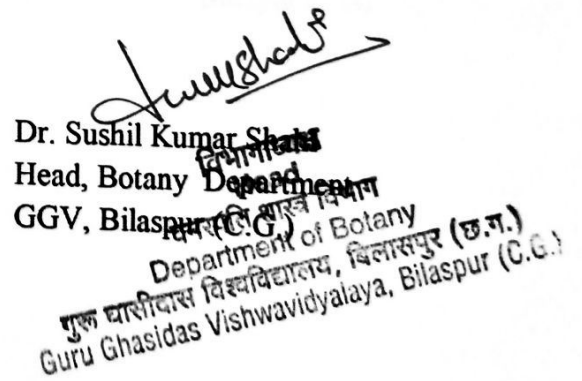 Dr. Sushil Kumar
Head, Botany Department
GGV, Bilaspur (C.G.)
विभागाध्यक्ष
Head
वनस्पति शास्त्र विभाग
Department of Botany
गुरू घासीदास विश्वविद्यालय, बिलासपुर (छ.ग.)
Guru Ghasidas Vishwavidyalaya, Bilaspur (C.G.)